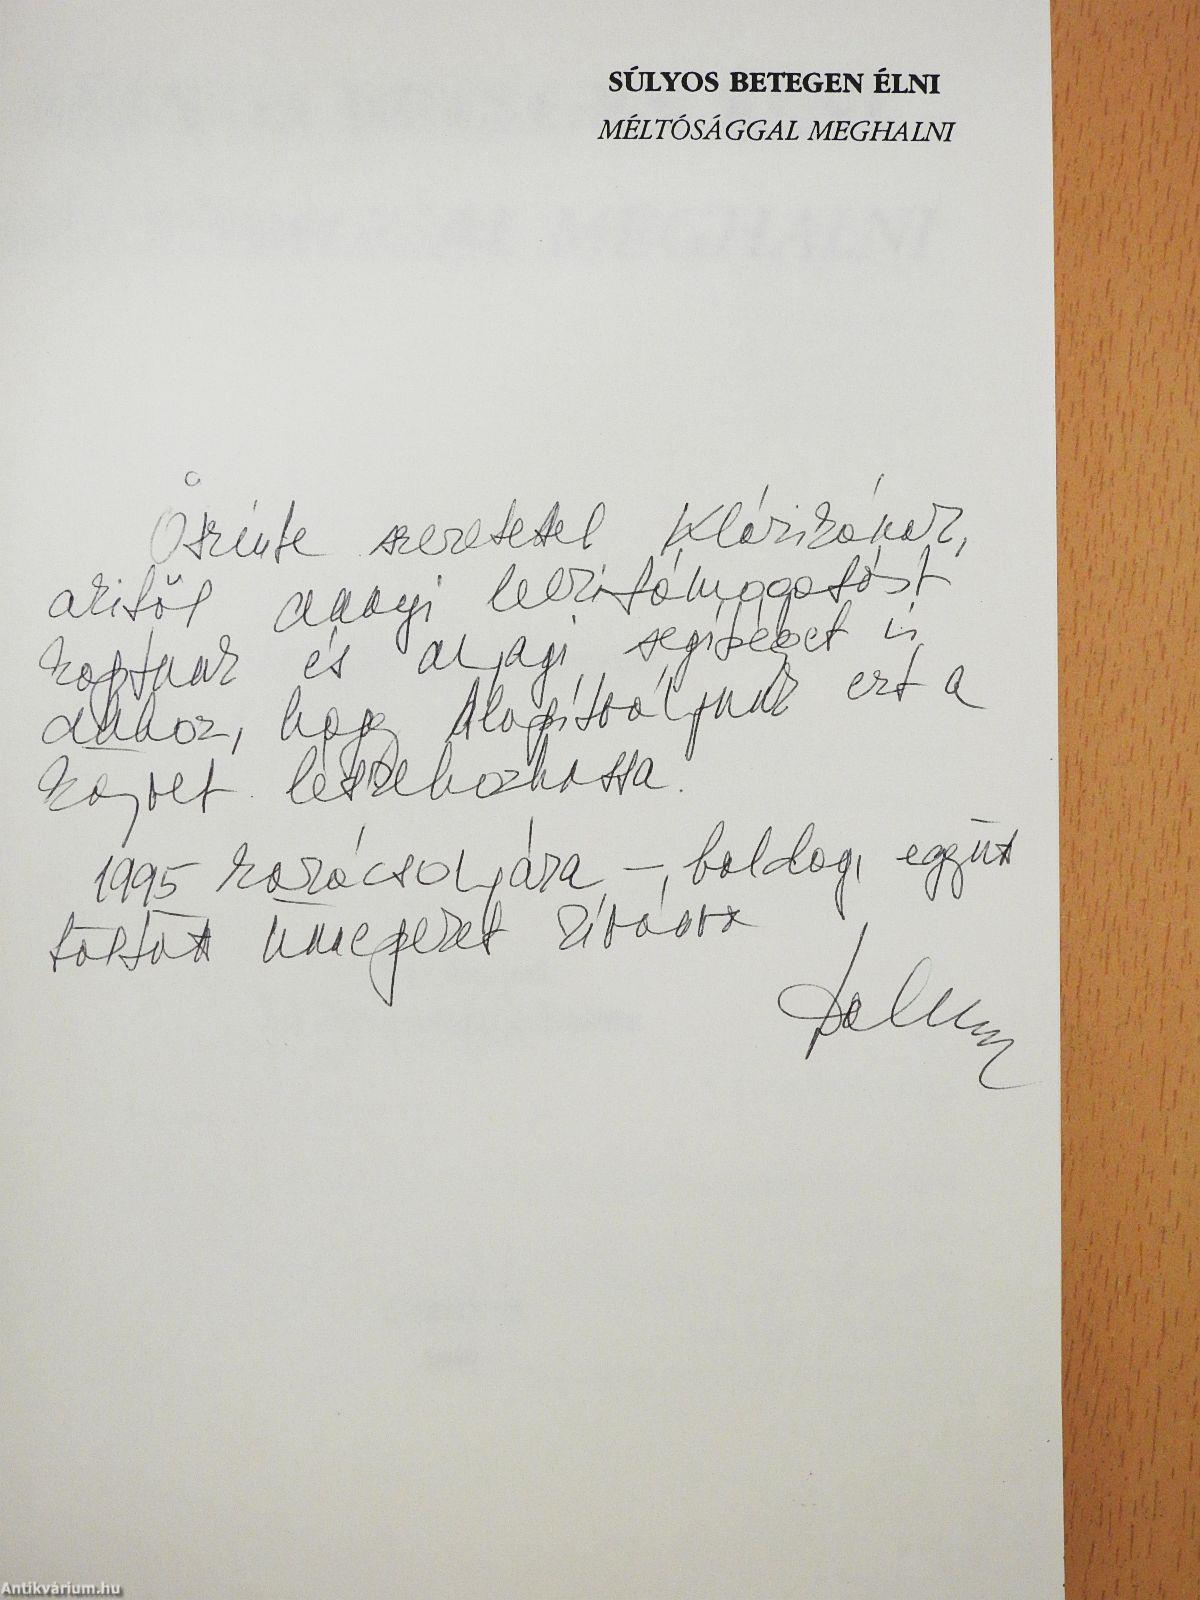 SÚLYOS BETEGEN ÉLNI
MÉLTÓSÁGGAL MEGHALNI
MEGHALNI
Őszinte szeretettel Klárikának,
akitől annyi lelki támogatást
kaptunk és anyagi segítséget is
ahhoz, hogy Alapítványunk ezt a
könyvet létrehozhassa.
1995 karácsonyára –, boldog, együtt
töltött ünnepeket kívánva
Antikvárium.hu